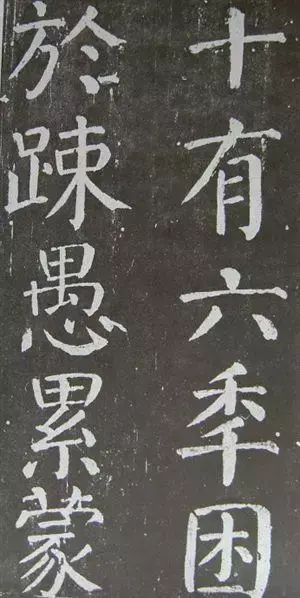 十有六秊困
於踈愚累蒙